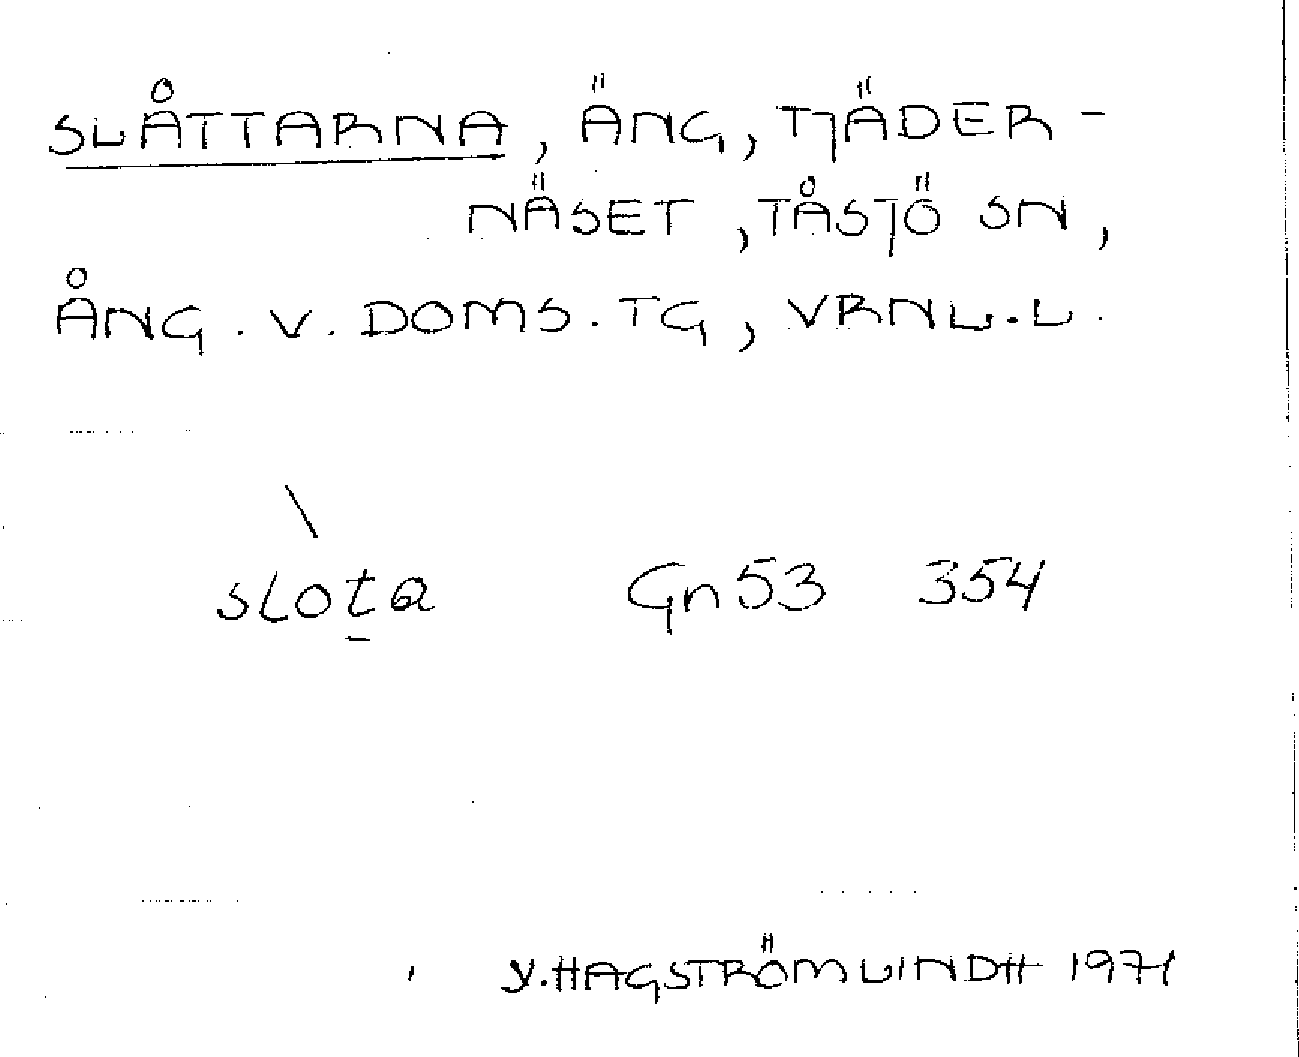 SLÅTTARNA, ÄNG, TJÄDER-
NÄSET, TÅSJÖ SN,
ÅNG. V. DOMS. TG, VRNL. L.
\
slota Gn53 354
Y. HAGSTRÖM LINDH 1971